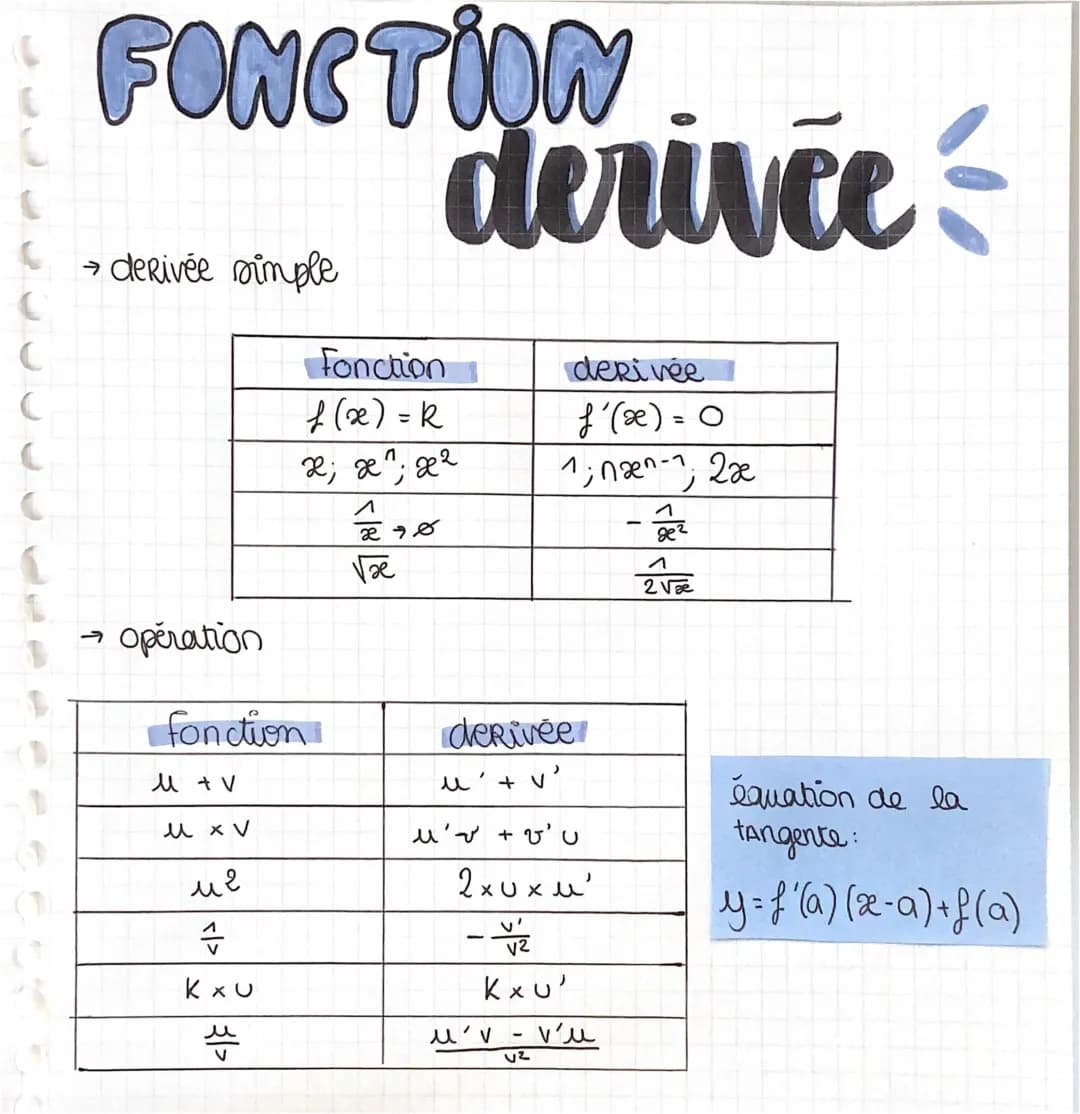 FONCTION
derivée
→ derivée simple
Fonction derivée
f(x) = k f'(x) = 0
x; xⁿ; x² 1; nxⁿ⁻¹; 2x
1/x → ∅ - 1/x²
√x 1/(2√x)
→ opération
fonction derivée
u + v u' + v'
u × v u'v + v'u
u² 2 × u × u'
1/v - v'/v²
K × u K × u'
u/v (u'v - v'u)/v²
équation de la
tangente:
y = f'(a)(x-a)+f(a)